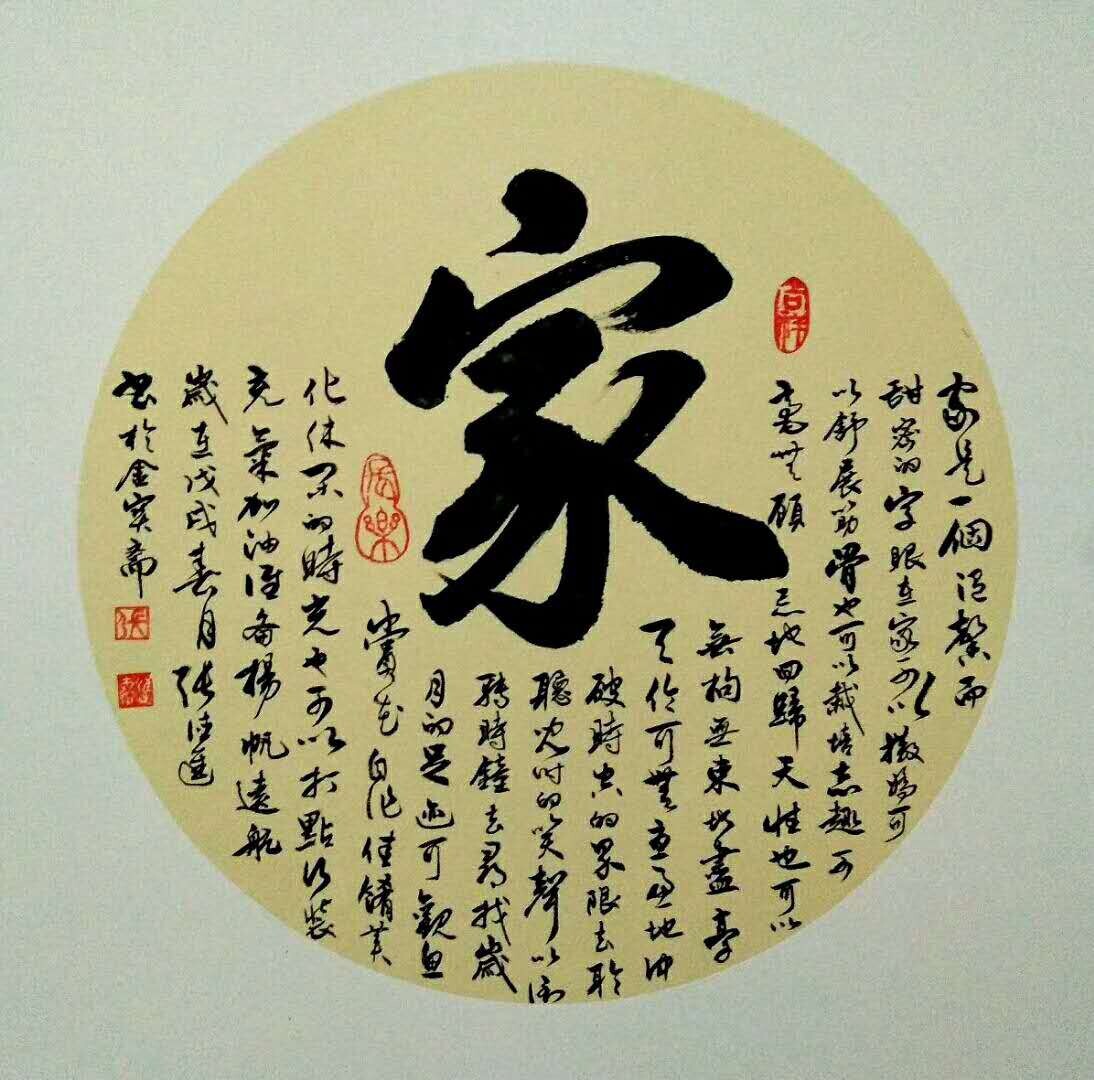 家
家是一個溫馨而
甜密的字眼在家可以撒嬌可
以舒展筋骨也可以栽培志趣可
毫無顧忌地回歸天性也可以
無拘無束地盡享
天倫可無意地沖
破時空的界限去聆
聽兒時的笑聲以倒
轉時鐘去尋找歲
月的足迹可觀魚
賞花自作佳餚美
化休閑的時光也可以打點行裝
充氣加油準備揚帆遠航
歲在戊戌春月張
書於金寶齋
居樂
張